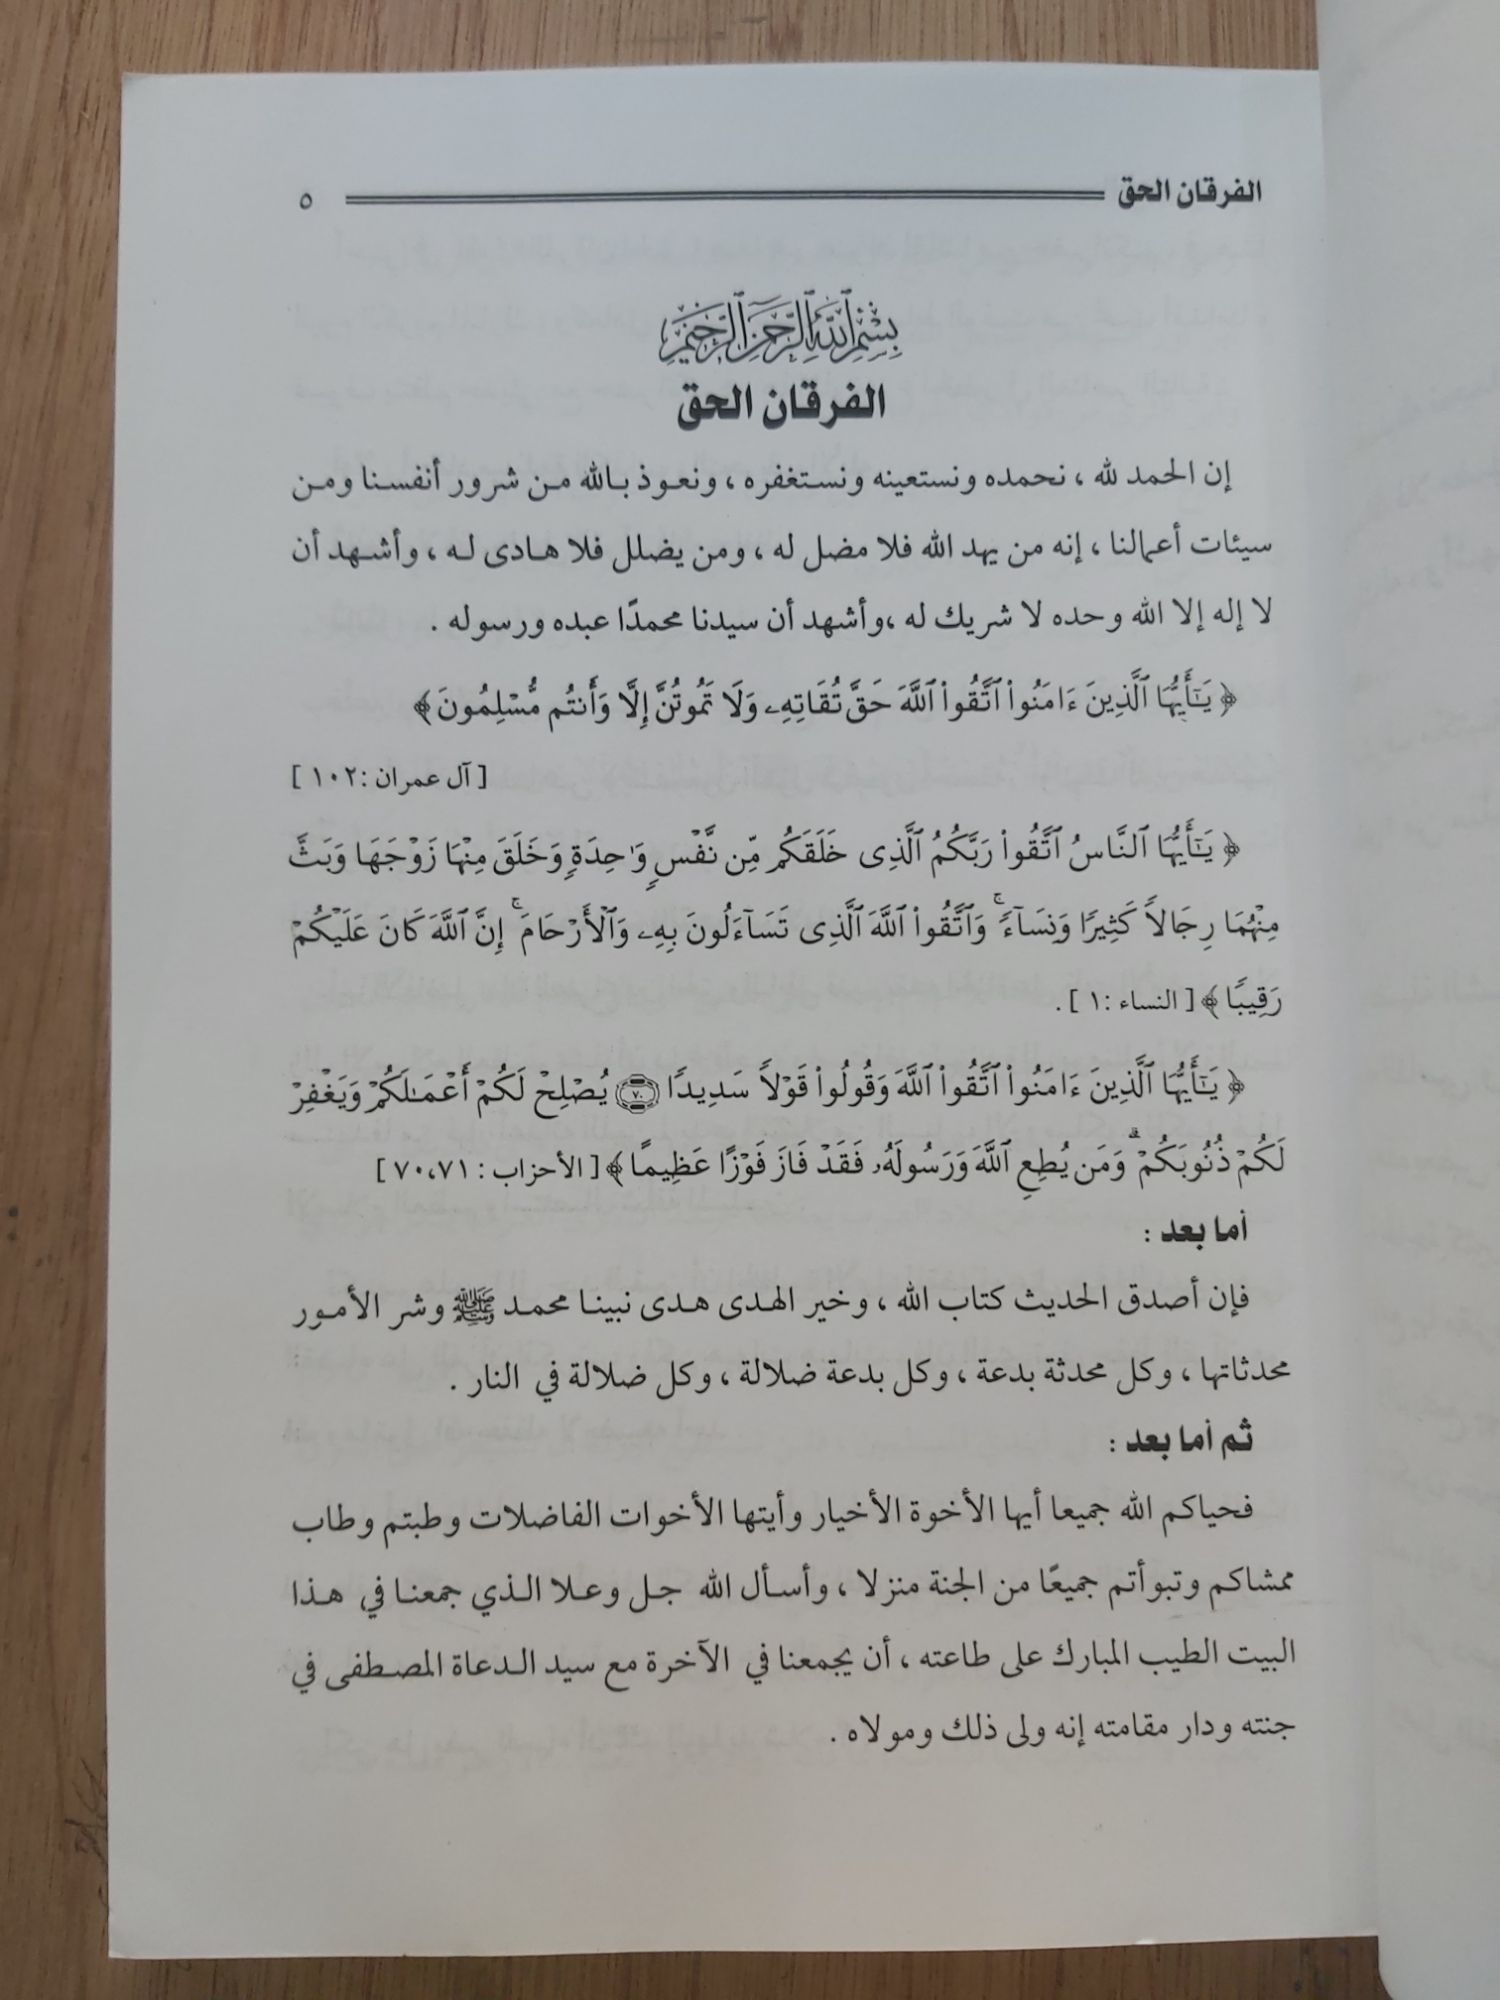 الفرقان الحق ٥
بِسْمِ اللَّهِ الرَّحْمَنِ الرَّحِيمِ
الفرقان الحق
إن الحمد لله ، نحمده ونستعينه ونستغفره ، ونعوذ بالله من شرور أنفسنا ومن
سيئات أعمالنا ، إنه من يهد الله فلا مضل له ، ومن يضلل فلا هادى له ، وأشهد أن
لا إله إلا الله وحده لا شريك له ،وأشهد أن سيدنا محمدًا عبده ورسوله .
﴿ يَـٰٓأَيُّهَا ٱلَّذِينَ ءَامَنُوا۟ ٱتَّقُوا۟ ٱللَّهَ حَقَّ تُقَاتِهِۦ وَلَا تَمُوتُنَّ إِلَّا وَأَنتُم مُّسْلِمُونَ﴾
[ آل عمران :١٠٢ ]
﴿ يَـٰٓأَيُّهَا ٱلنَّاسُ ٱتَّقُوا۟ رَبَّكُمُ ٱلَّذِى خَلَقَكُم مِّن نَّفْسٍ وَٰحِدَةٍ وَخَلَقَ مِنْهَا زَوْجَهَا وَبَثَّ
مِنْهُمَا رِجَالاً كَثِيرًا وَنِسَآءً ۚ وَٱتَّقُوا۟ ٱللَّهَ ٱلَّذِى تَسَآءَلُونَ بِهِۦ وَٱلْأَرْحَامَ ۚ إِنَّ ٱللَّهَ كَانَ عَلَيْكُمْ
رَقِيبًا ﴾ [ النساء :١ ] .
﴿ يَـٰٓأَيُّهَا ٱلَّذِينَ ءَامَنُوا۟ ٱتَّقُوا۟ ٱللَّهَ وَقُولُوا۟ قَوْلاً سَدِيدًا ۝٧٠ يُصْلِحْ لَكُمْ أَعْمَـٰلَكُمْ وَيَغْفِرْ
لَكُمْ ذُنُوبَكُمْ ۗ وَمَن يُطِعِ ٱللَّهَ وَرَسُولَهُۥ فَقَدْ فَازَ فَوْزًا عَظِيمًا ﴾ [ الأحزاب : ٧٠،٧١ ]
أما بعد :
فإن أصدق الحديث كتاب الله ، وخير الهدى هدى نبينا محمد ﷺ وشر الأمور
محدثاتها ، وكل محدثة بدعة ، وكل بدعة ضلالة ، وكل ضلالة في النار .
ثم أما بعد :
فحياكم الله جميعا أيها الأخوة الأخيار وأيتها الأخوات الفاضلات وطبتم وطاب
ممشاكم وتبوأتم جميعًا من الجنة منزلا ، وأسأل الله جل وعلا الذي جمعنا في هذا
البيت الطيب المبارك على طاعته ، أن يجمعنا في الآخرة مع سيد الدعاة المصطفى في
جنته ودار مقامته إنه ولى ذلك ومولاه .